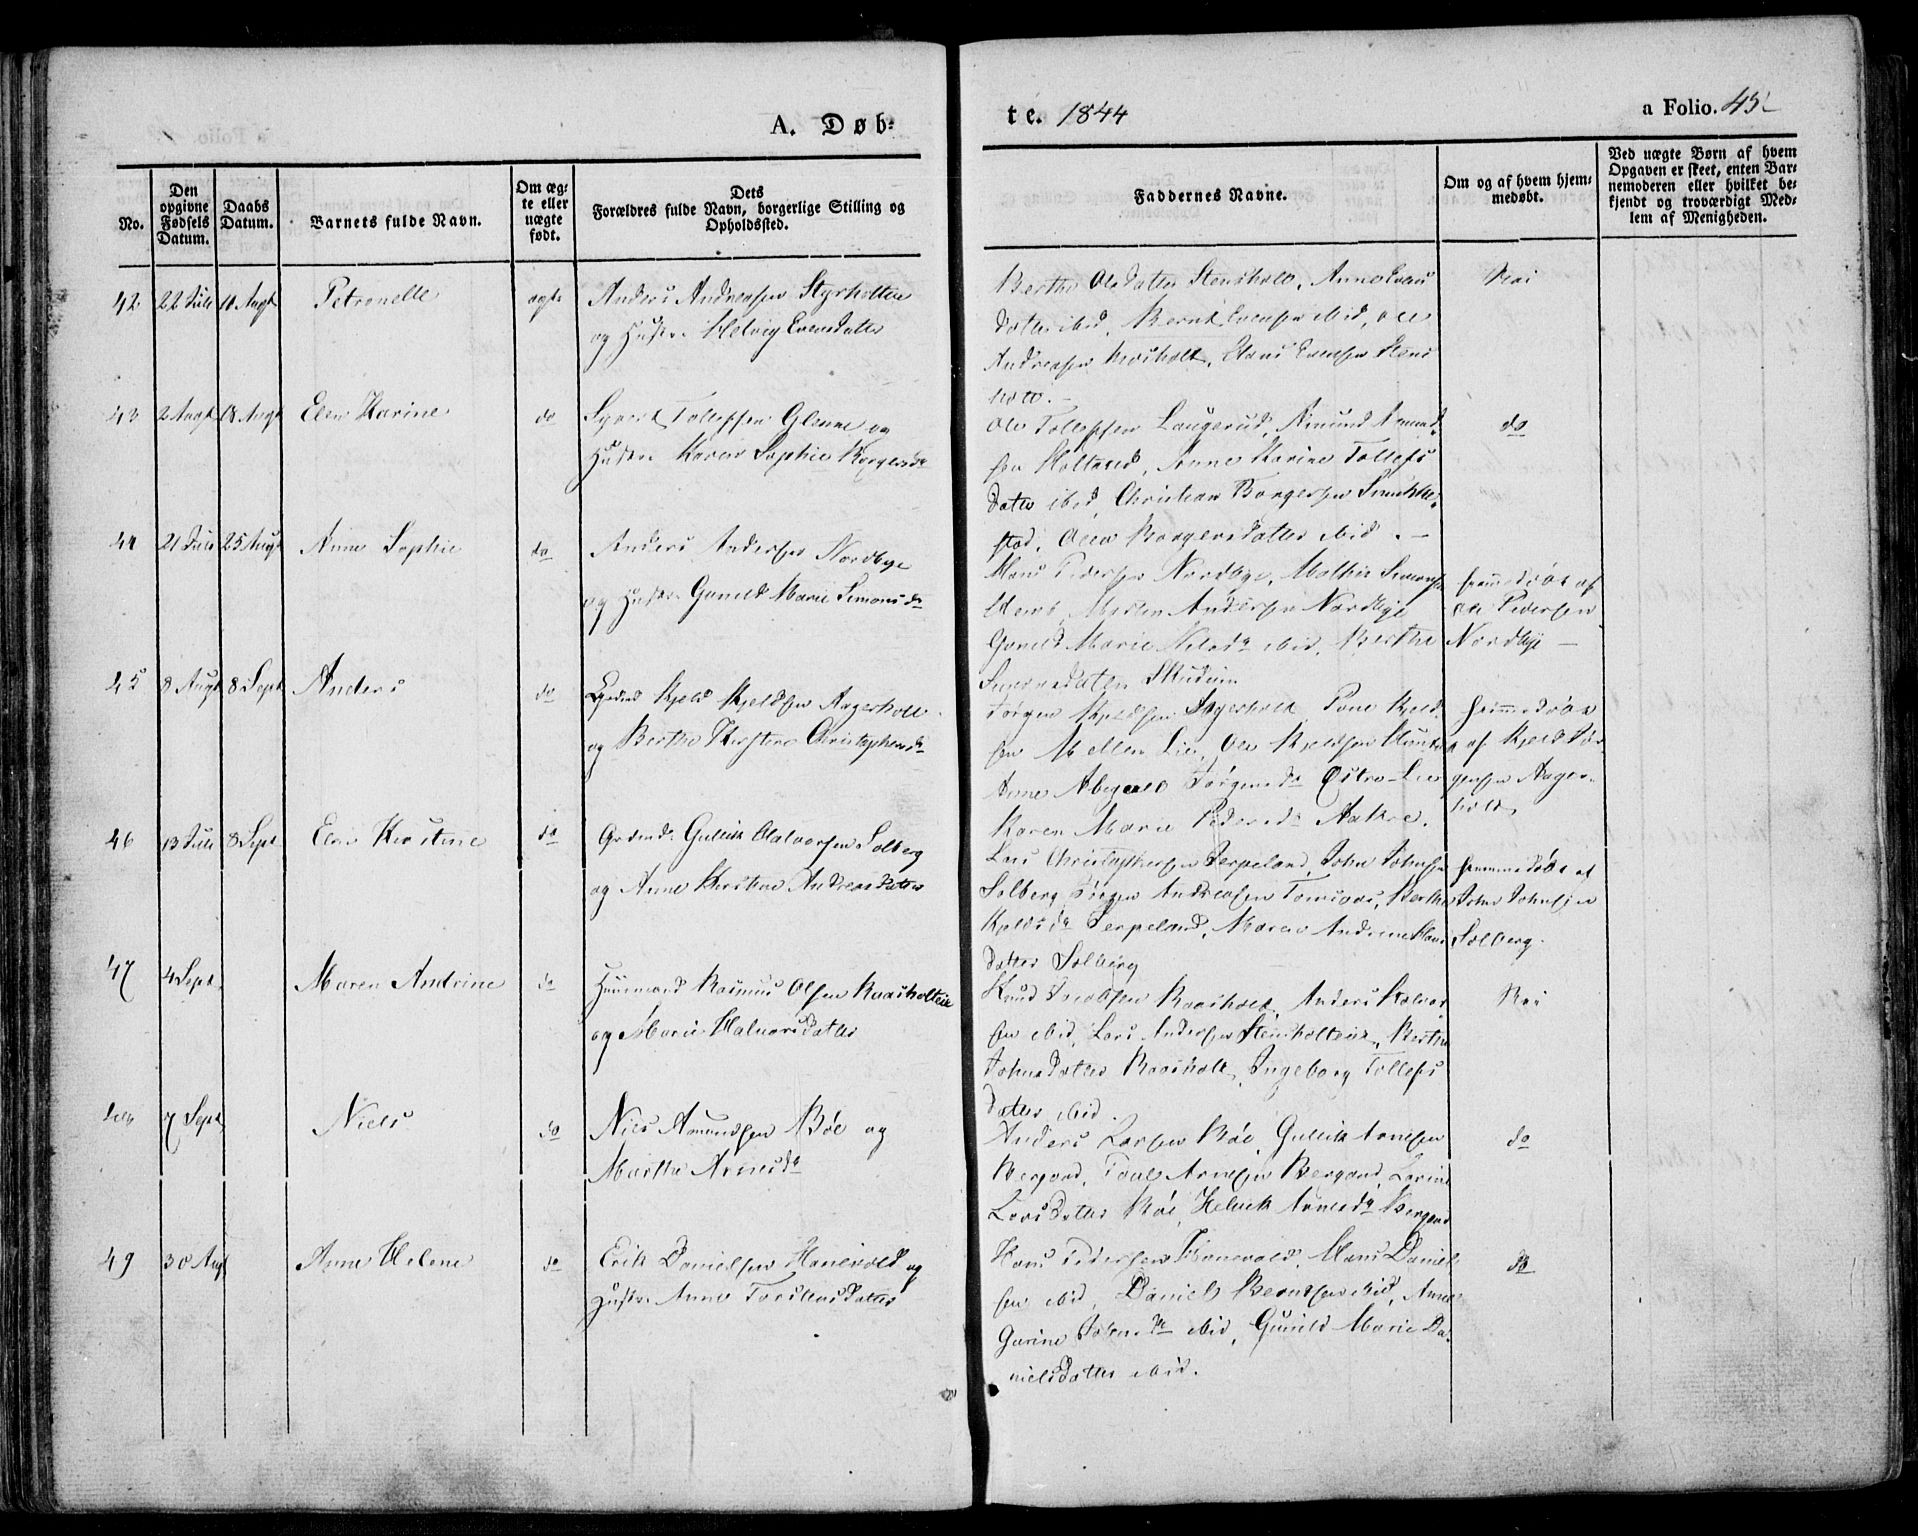 A. Døb-
te. 1844
a Folio. 45
No.
Den opgivne Fødsels Datum.
Daabs Datum.
Barnets fulde Navn.
Om ægte eller uægte født.
Dets Forældres fulde Navn, borgerlige Stilling og Opholdssted.
Faddernes Navne.
Om og af hvem hjemmedøbt.
Ved uægte Børn af hvem
Opgaven er skeet, enten Bar-
nemoderen eller hvilket be-
kjendt og troværdigt Med-
lem af Menigheden.
42 22 Juli 11 Augt Petronelle ægte Anders Andreasen
og Hustr. Helvig Evensdatter
Berthe Olsdatter Stensholt, Anne Evens
datter ibid, Bernt Evensen ibid, Ole
Andreasen, Hans Evensen Stens
holt. -
Nei
43 2 Augt 18 Augt Elen Karine do Syvert Tollefsen Glenne og
Hustr. Karen Sophie
Ole Tollefsen Laugerud, Amund Amund-
sen Holtand, Anne Karine Tollefs
datter ibid, Christian Borgersen
stad, Borgersdatter ibid. -
do
44 21 Juli 25 Augt Anne Sophie do Anders Andersen Nordbye
og Hustr. Gunild Marie Simonsdr
Hans Pedersen Nordbye, Mathis Simons
Andersen Nordbye
Gunild Marie Nilsdr ibid, Berthe
Simonsdatter
hjemmedøbt af
Ole Pedersen
Nordbye -
45 8 Augt 8 Sept Anders do Kjeld Kjeldsen Aagerholt
og Berthe Kirstine Christophersdr
Jørgen Kjeldsen Aagerholt,
sen Mellem Lie, Ole Kjeldsen
Anne Abigael Jørgensdr Østre Lie
Karen Marie Pedersdr Aakre.
hjemmedøbt
af Kjeld Jør-
gensen Aager-
holt
46 13 Juli 8 Sept Elen Kirstine do Gullik Halvorsen Solberg
og Anne Kirstine Andreasdatter
Lars Christophersen Serpeland, John Johnsen
Solberg Jørgen Andreasen, Berthe
Kjeldsdr Serpeland, Maren Andrine Hans
datter Solberg
hjemmedøbt af
John Johnsen
Solberg.
47 4 Sept Maren Andrine do Huusmand Rasmus Olsen Raasholteie
og Marie Halvorsdatter
Knud Jacobsen Raasholt, Anders Halvor
sen ibid, Lars Andersen Stensholteie, Berthe
Johnsdatter Raasholt, Ingeborg Tollefs
datter ibid.
Nei
7 Sept Niels do Niels Amundsen Bøe og
Marthe Arnesdr
Anders Larsen Bøe, Gullik Arnesen
Bergand, Poul Arnesen Bergand, Larine
Larsdatter Bøe, Helvik Arnesdr Bergand
do
49 30 Augt Anne Helene do Erik Danielsen Hanevold og
Hustr. Anne Torstensdatter
Hans Pedersen Hanevold, Hans Daniel-
sen ibid, Daniel Berntsen ibid, Anne
Gurine Johnsdr ibid, Gunild Marie Da-
nielsdatter ibid.
do